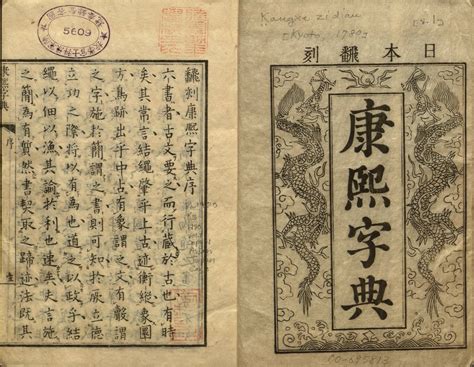 日本翻刻
康熙字典
Kangxi zidian
Kyoto, 1780
5609
飜刻康熙字典序
六書者古文要之而行藏於古也有時
矣其常言結繩肇乎上古迹衡縱象圖
方焉跡出乎中古有像謂之文有聲謂
之字施於簡謂之書則可知於厥立德
立功之際將以有為也道之以政乎結
繩以佃以漁其諭於利也速矣史言施
之簡為有然書契取之歸迹法既其
康熙字典 序